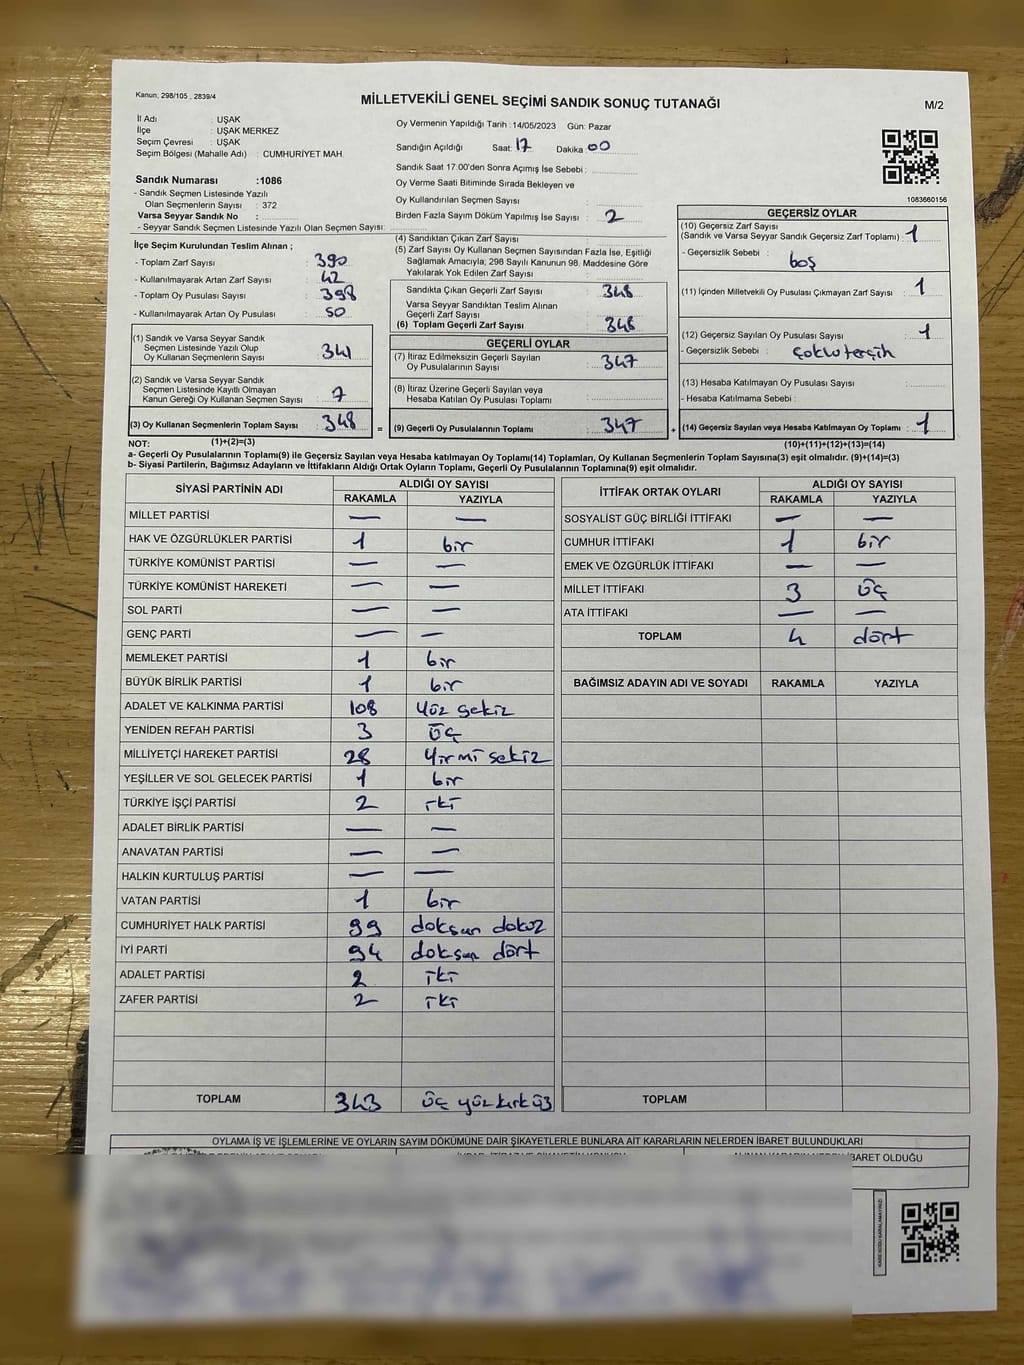 Kanun, 298/105 , 2839/4
MİLLETVEKİLİ GENEL SEÇİMİ SANDIK SONUÇ TUTANAĞI
M/2
İl Adı : UŞAK
İlçe : UŞAK MERKEZ
Seçim Çevresi : UŞAK
Seçim Bölgesi (Mahalle Adı) : CUMHURİYET MAH.
Sandık Numarası :1086
- Sandık Seçmen Listesinde Yazılı
Olan Seçmenlerin Sayısı : 372
Varsa Seyyar Sandık No :
- Seyyar Sandık Seçmen Listesinde Yazılı Olan Seçmen Sayısı:
Oy Vermenin Yapıldığı Tarih :14/05/2023 Gün: Pazar
Sandığın Açıldığı Saat: 17 Dakika: 00
Sandık Saat 17:00'den Sonra Açımış İse Sebebi :
Oy Verme Saati Bitiminde Sırada Bekleyen ve
Oy Kullandırılan Seçmen Sayısı :
Birden Fazla Sayım Döküm Yapılmış İse Sayısı : 2
1083660156
İlçe Seçim Kurulundan Teslim Alınan ;
- Toplam Zarf Sayısı : 390
- Kullanılmayarak Artan Zarf Sayısı : 42
- Toplam Oy Pusulası Sayısı : 398
- Kullanılmayarak Artan Oy Pusulası : 50
(1) Sandık ve Varsa Seyyar Sandık
Seçmen Listesinde Yazılı Olup
Oy Kullanan Seçmenlerin Sayısı : 341
(2) Sandık ve Varsa Seyyar Sandık
Seçmen Listesinde Kayıtlı Olmayan
Kanun Gereği Oy Kullanan Seçmen Sayısı : 7
(3) Oy Kullanan Seçmenlerin Toplam Sayısı : 348 =
(4) Sandıktan Çıkan Zarf Sayısı :
(5) Zarf Sayısı Oy Kullanan Seçmen Sayısından Fazla İse, Eşitliği
Sağlamak Amacıyla; 298 Sayılı Kanunun 98. Maddesine Göre
Yakılarak Yok Edilen Zarf Sayısı :
Sandıkta Çıkan Geçerli Zarf Sayısı : 348
Varsa Seyyar Sandıktan Teslim Alınan
Geçerli Zarf Sayısı :
(6) Toplam Geçerli Zarf Sayısı : 348
GEÇERLİ OYLAR
(7) İtiraz Edilmeksizin Geçerli Sayılan
Oy Pusulalarının Sayısı : 347
(8) İtiraz Üzerine Geçerli Sayılan veya
Hesaba Katılan Oy Pusulası Toplamı :
(9) Geçerli Oy Pusulalarının Toplamı : 347 +
GEÇERSİZ OYLAR
(10) Geçersiz Zarf Sayısı
(Sandık ve Varsa Seyyar Sandık Geçersiz Zarf Toplamı) : 1
- Geçersizlik Sebebi : boş
(11) İçinden Milletvekili Oy Pusulası Çıkmayan Zarf Sayısı : 1
(12) Geçersiz Sayılan Oy Pusulası Sayısı : 1
- Geçersizlik Sebebi : çoklu tercih
(13) Hesaba Katılmayan Oy Pusulası Sayısı :
- Hesaba Katılmama Sebebi :
(14) Geçersiz Sayılan veya Hesaba Katılmayan Oy Toplamı : 1
NOT: (1)+(2)=(3) (10)+(11)+(12)+(13)=(14)
a- Geçerli Oy Pusulalarının Toplamı(9) ile Geçersiz Sayılan veya Hesaba katılmayan Oy Toplamı(14) Toplamları, Oy Kullanan Seçmenlerin Toplam Sayısına(3) eşit olmalıdır. (9)+(14)=(3)
b- Siyasi Partilerin, Bağımsız Adayların ve İttifakların Aldığı Ortak Oyların Toplamı, Geçerli Oy Pusulalarının Toplamına(9) eşit olmalıdır.
SİYASİ PARTİNİN ADI ALDIĞI OY SAYISI
RAKAMLA YAZIYLA
MİLLET PARTİSİ — —
HAK VE ÖZGÜRLÜKLER PARTİSİ 1 bir
TÜRKİYE KOMÜNİST PARTİSİ — —
TÜRKİYE KOMÜNİST HAREKETİ — —
SOL PARTİ — —
GENÇ PARTİ — —
MEMLEKET PARTİSİ 1 bir
BÜYÜK BİRLİK PARTİSİ 1 bir
ADALET VE KALKINMA PARTİSİ 108 yüz sekiz
YENİDEN REFAH PARTİSİ 3 üç
MİLLİYETÇİ HAREKET PARTİSİ 28 Yirmi sekiz
YEŞİLLER VE SOL GELECEK PARTİSİ 1 bir
TÜRKİYE İŞÇİ PARTİSİ 2 iki
ADALET BİRLİK PARTİSİ — —
ANAVATAN PARTİSİ — —
HALKIN KURTULUŞ PARTİSİ — —
VATAN PARTİSİ 1 bir
CUMHURİYET HALK PARTİSİ 99 doksan dokuz
İYİ PARTİ 94 doksan dört
ADALET PARTİSİ 2 iki
ZAFER PARTİSİ 2 iki
TOPLAM 343 üç yüz kırk üç
İTTİFAK ORTAK OYLARI ALDIĞI OY SAYISI
RAKAMLA YAZIYLA
SOSYALİST GÜÇ BİRLİĞİ İTTİFAKI — —
CUMHUR İTTİFAKI 1 bir
EMEK VE ÖZGÜRLÜK İTTİFAKI — —
MİLLET İTTİFAKI 3 üç
ATA İTTİFAKI — —
TOPLAM 4 dört
BAĞIMSIZ ADAYIN ADI VE SOYADI RAKAMLA YAZIYLA
TOPLAM
OYLAMA İŞ VE İŞLEMLERİNE VE OYLARIN SAYIM DÖKÜMÜNE DAİR ŞİKAYETLERLE BUNLARA AİT KARARLARIN NELERDEN İBARET BULUNDUKLARI
İBARET OLDUĞU
KARE KODU KARALAMAYINIZ!